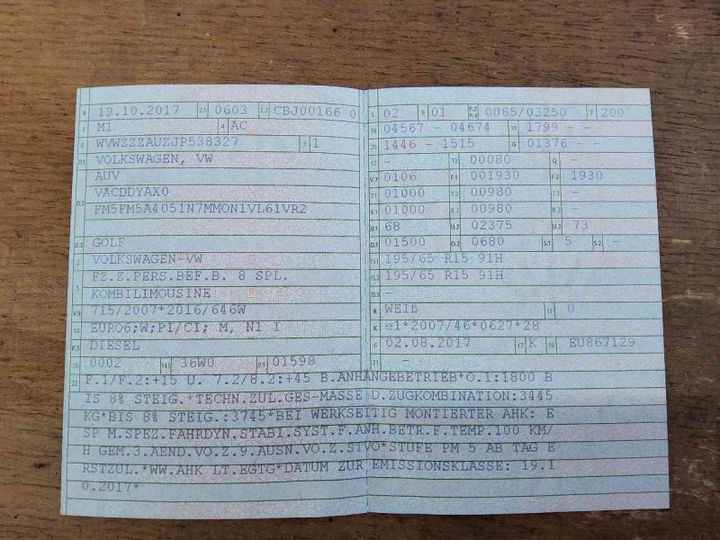 B 19.10.2017 2.1 0603 2.2 CBJ00166 0
J M1 4 AC
E WVWZZZAUZJP538327 3 1
D.1 VOLKSWAGEN, VW
AUV
D.2 VACDDYAX0
FM5FM5A4051N7MMON1VL61VR2
D.3 GOLF
2 VOLKSWAGEN-VW
5 FZ.Z.PERS.BEF.B. 8 SPL.
KOMBILIMOUSINE
V.9 715/2007*2016/646W
14 EURO6;W;PI/CI; M, N1 I
P.3 DIESEL
10 0002 14.1 36W0 P.1 01598
L 02 9 01 P.2 P.4 0085/03250 T 200
18 04567 - 04674 19 1799 - -
20 1446 - 1515 G 01376 - -
12 - 13 00080 Q -
V.7 0106 F.1 001930 F.2 1930
7.1 01000 7.2 00980 7.3 -
8.1 01000 8.2 00980 8.3 -
U.1 68 U.2 02375 U.3 73
O.1 01500 O.2 0680 S.1 5 S.2 -
15.1 195/65 R15 91H
15.2 195/65 R15 91H
15.3 -
R WEIß 11 0
K e1*2007/46*0627*28
6 02.08.2017 17 K 16 EU867129
21 -
22 F.1/F.2:+15 U. 7.2/8.2:+45 B.ANHÄNGEBETRIEB*O.1:1800 B
IS 8% STEIG.*TECHN.ZUL.GES-MASSE D.ZUGKOMBINATION:3445
KG*BIS 8% STEIG.:3745*BEI WERKSEITIG MONTIERTER AHK: E
SP M.SPEZ.FAHRDYN.STABI.SYST.F.ANH.BETR.F.TEMP.100 KM/
H GEM.3.AEND.VO.Z.9.AUSN.VO.Z.STVO*STUFE PM 5 AB TAG E
RSTZUL.*WW.AHK LT.EGTG*DATUM ZUR EMISSIONSKLASSE: 19.1
0.2017*